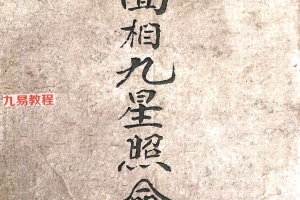 面相九星照
九易教程